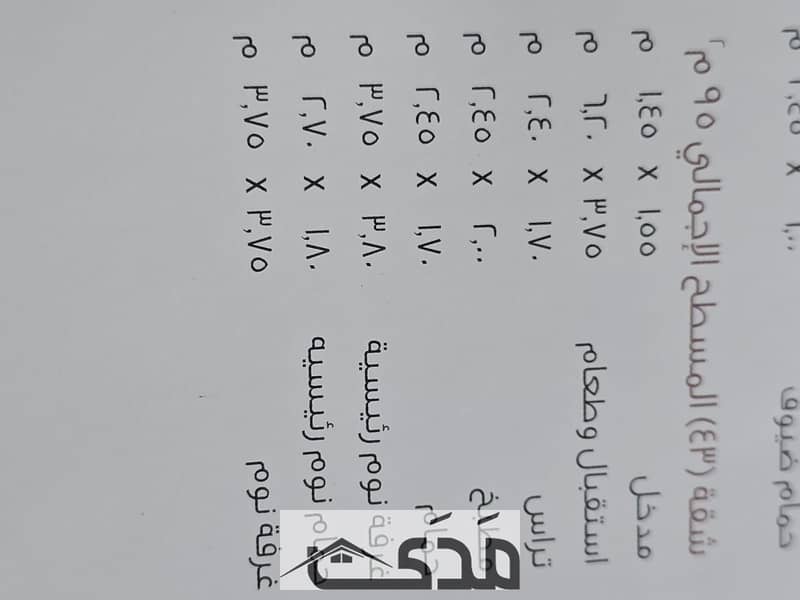 حمام ضيوف ١,٠٠ x
شقة (٤٣) المسطح الإجمالي ٩٥ م٢
مدخل ١,٥٥ x ١,٤٥ م
استقبال وطعام ٣,٧٥ x ٦,٢٠ م
تراس ١,٧٠ x ٢,٤٠ م
مطبخ ٢,٠٠ x ٢,٤٥ م
حمام ١,٧٠ x ٢,٤٥ م
غرفة نوم رئيسية ٣,٨٠ x ٣,٧٥ م
حمام نوم رئيسيه ١,٨٠ x ٢,٧٠ م
غرفة نوم ٣,٧٥ x ٣,٧٥ م